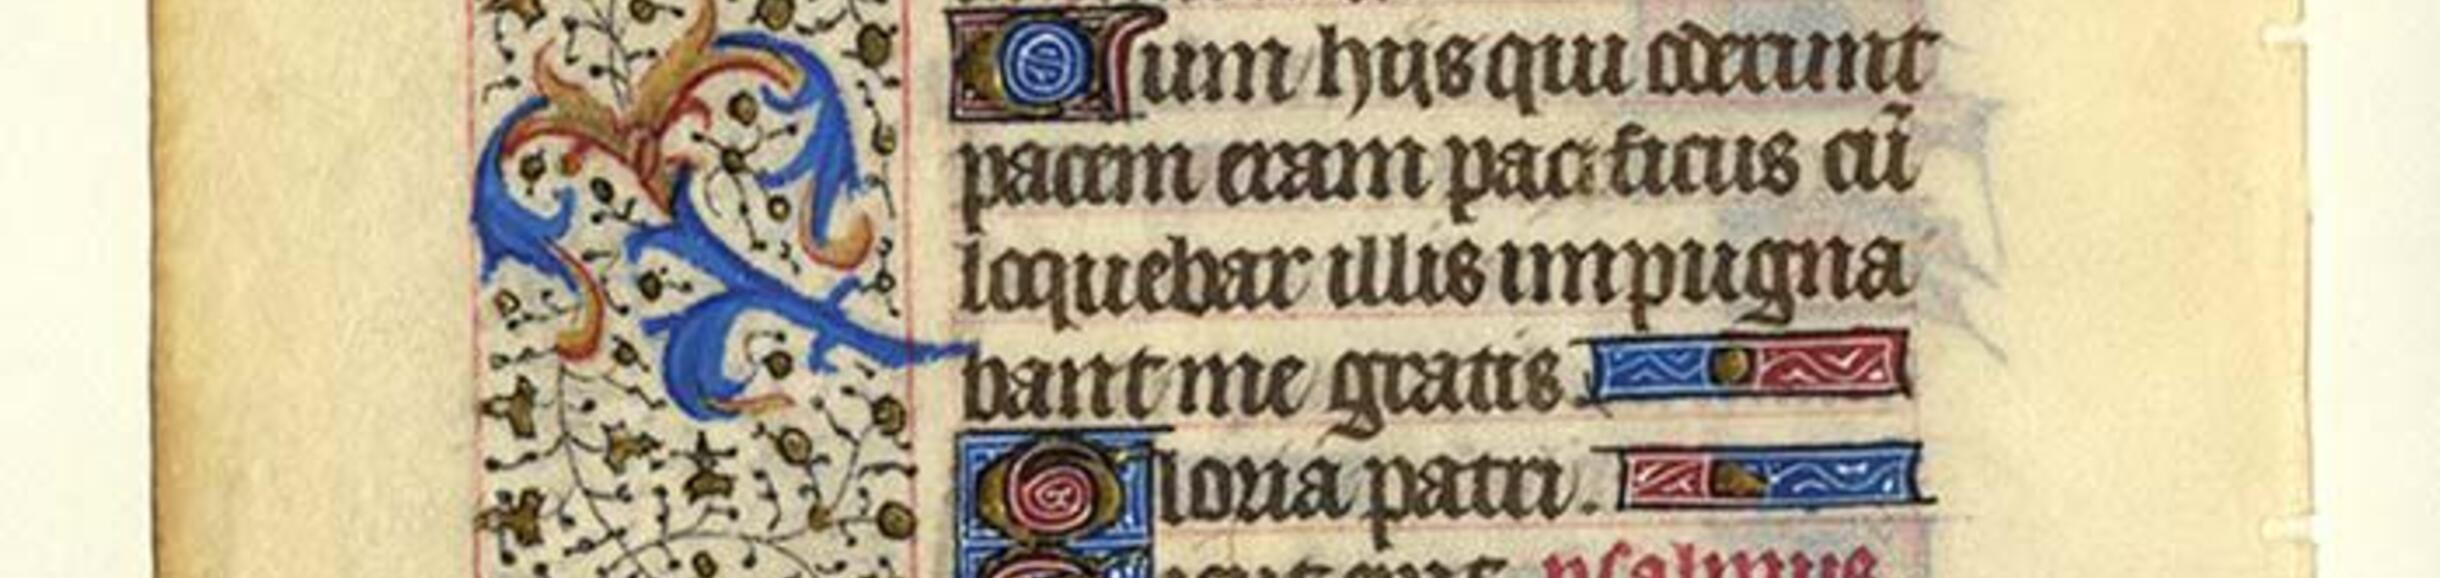 Cum hijs qui oderunt
pacem eram pacificus cũ
loquebar illis impugna
bant me gratis
Gloria patri.
Sicut erat psalmus